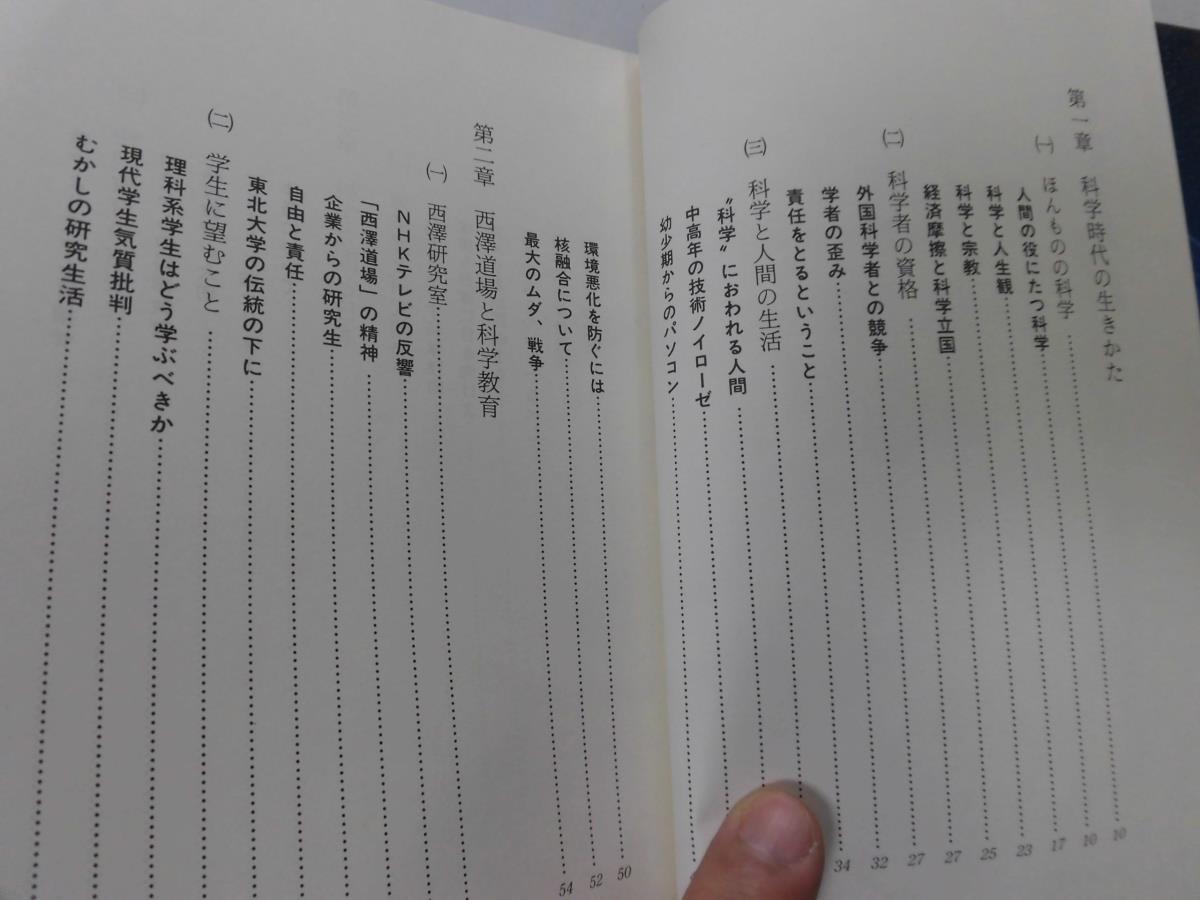 第一章 科学時代の生きかた
㈠ ほんものの科学 10
人間の役にたつ科学 10
科学と人生観 17
科学と宗教 23
経済摩擦と科学立国 25
㈡ 科学者の資格 27
外国科学者との競争 27
学者の歪み 32
責任をとるということ 34
㈢ 科学と人間の生活
〝科学〟におわれる人間
中高年の技術ノイローゼ
幼少期からのパソコン
環境悪化を防ぐには 50
核融合について 52
最大のムダ、戦争 54
第二章 西澤道場と科学教育
㈠ 西澤研究室
NHKテレビの反響
「西澤道場」の精神
企業からの研究生
自由と責任
東北大学の伝統の下に
㈡ 学生に望むこと
理科系学生はどう学ぶべきか
現代学生気質批判
むかしの研究生活